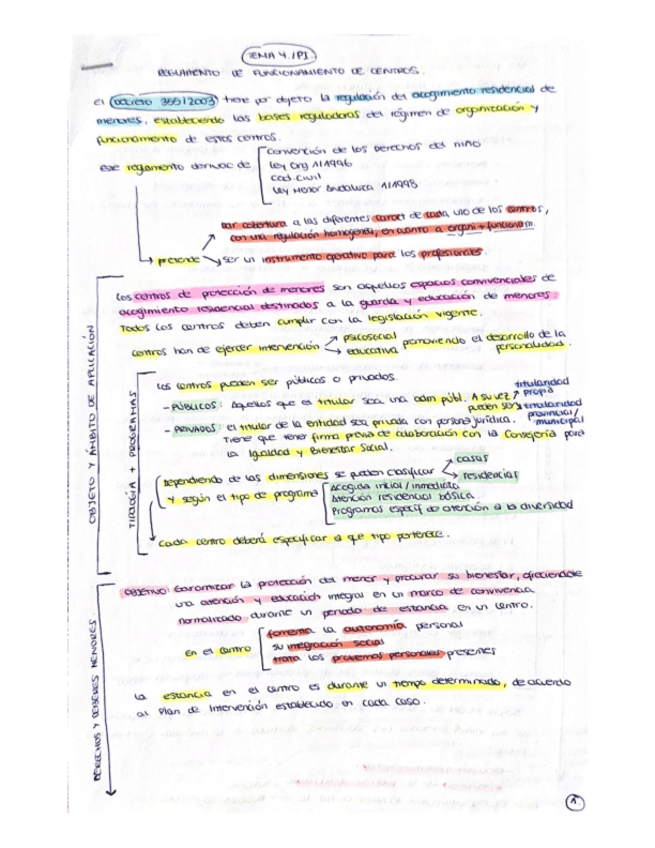 TEMA 4. /P1.
REGLAMENTO DE FUNCIONAMIENTO DE CENTROS.
El Decreto 355/2003 tiene por objeto la regulación del acogimiento residencial de
menores, estableciendo las bases reguladoras del régimen de organización y
funcionamiento de estos centros.
ese reglamento derivac de
Convención de los Derechos del niño
Ley Org 1/1996
Cod. Civil
Ley Menor Andaluza 1/1998
pretende
dar cobertura a las diferentes caract de cada uno de los centros,
con una regulación homogénea, en cuanto a organi + funcionam.
ser un instrumento operativo para los profesionales.
OBJETO Y ÁMBITO DE APLICACIÓN
Los centros de protección de menores son aquellos espacios convivenciales de
acogimiento residencial destinados a la guarda y educación de menores.
Todos los centros deben cumplir con la legislación vigente.
centros han de ejercer intervención
psicosocial
educativa
promoviendo el desarrollo de la
personalidad.
TIPOLOGÍA + PROGRAMAS
Los centros pueden ser públicos o privados.
- PÚBLICOS: Aquellos que el titular sea una adm públ. A su vez
pueden ser
titularidad
propia
titularidad
provincial/
municipal
- PRIVADOS: el titular de la entidad sea privada con persona jurídica.
Tiene que tener firma previa de colaboración con la Consejería para
la Igualdad y Bienestar Social.
Dependiendo de las dimensiones se pueden clasificar
casas
residencias
y según el tipo de programa
Acogida inicial / inmediata
Atención residencial básica
Programas específ de atención a la diversidad
Cada centro deberá especificar a que tipo pertenece.
DERECHOS Y DEBERES MENORES
OBJETIVO: Garantizar la protección del menor y procurar su bienestar, ofreciendole
una atención y educación integral en un marco de convivencia
normalizado durante un periodo de estancia en un centro.
en el centro
fomenta la autonomía personal
su integración social
trata los problemas personales presentes
La estancia en el centro es durante un tiempo determinado, de acuerdo
al Plan de Intervención establecido en cada caso.
1